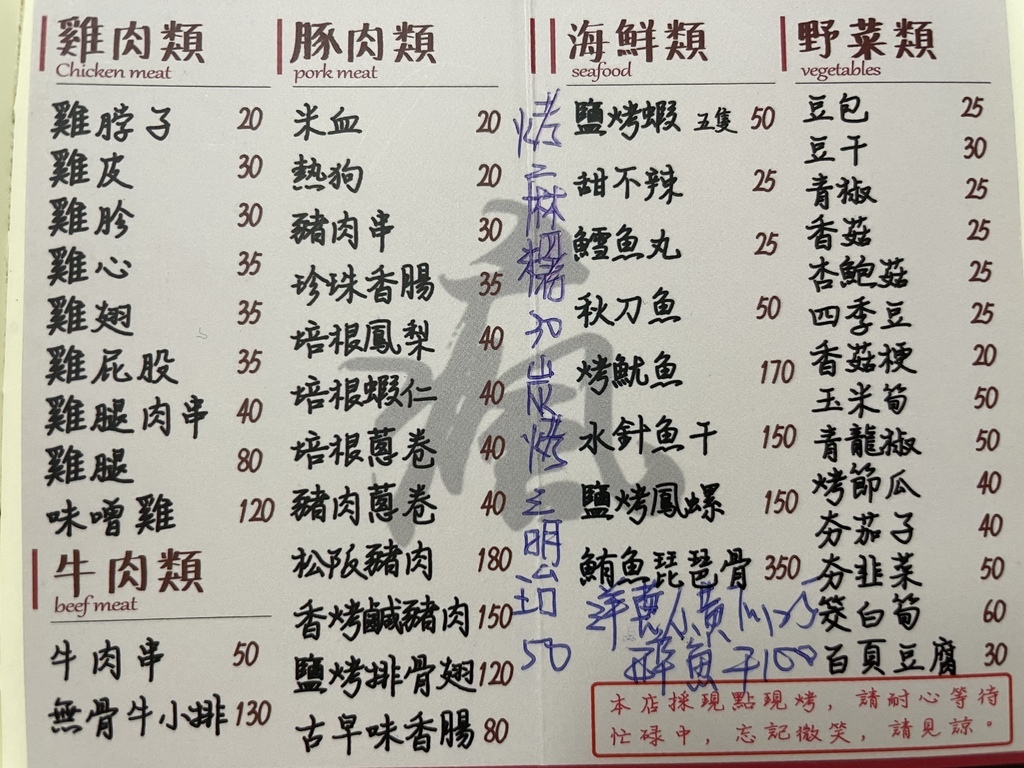 雞肉類
Chicken meat
雞脖子 20
雞皮 30
雞胗 30
雞心 35
雞翅 35
雞屁股 35
雞腿肉串 40
雞腿 80
味噌雞 120
牛肉類
beef meat
牛肉串 50
無骨牛小排 130
豚肉類
pork meat
米血 20
熱狗 20
豬肉串 30
珍珠香腸 35
培根鳳梨 40
培根蝦仁 40
培根蔥卷 40
豬肉蔥卷 40
松阪豬肉 180
香烤鹹豬肉 150
鹽烤排骨翅 120
古早味香腸 80
烤麻糬 30 炭烤三明治 50
海鮮類
seafood
鹽烤蝦 五隻 50
甜不辣 25
鱈魚丸 25
秋刀魚 50
烤魷魚 170
水針魚干 150
鹽烤鳳螺 150
鮪魚琵琶骨 350
小黃瓜 25
魚干 100
野菜類
vegetables
豆包 25
豆干 30
青椒 25
香菇 25
杏鮑菇 25
四季豆 25
香菇梗 20
玉米筍 50
青龍椒 50
烤節瓜 40
夯茄子 40
夯韭菜 50
筊白筍 60
百頁豆腐 30
本店採現點現烤，請耐心等待
忙碌中，忘記微笑，請見諒。
瘋